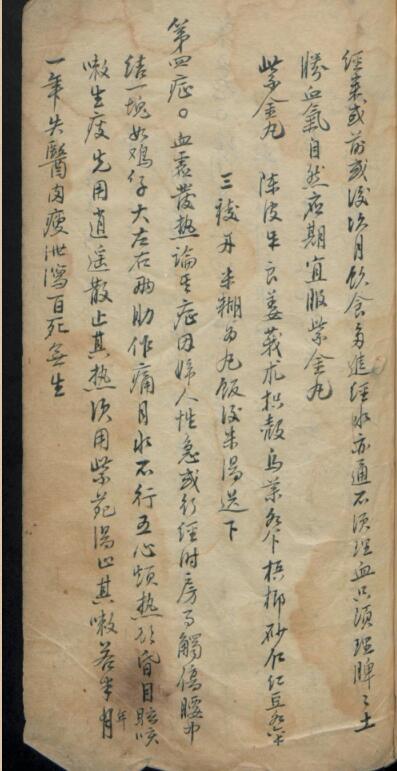 經来或前或後次月飲食多進經水亦通不須理血只須理脾〻土
勝血氣自然应期宜服紫金丸
紫金丸 陈皮 良姜莪朮枳殻烏薬 梹榔砂仁红豆
三稜 米糊为丸飯後米湯送下
第四症。血虚發熱論 症因婦人性急或行經时房事觸傷腰中
结一塊如鸡仔大左右兩肋作痛月水不行五心煩熱 昏目眩咳
嗽生痰先用逍遥散止其热次用紫苑湯止其嗽若半月
年
一年失醫肉瘦泄瀉百死無生